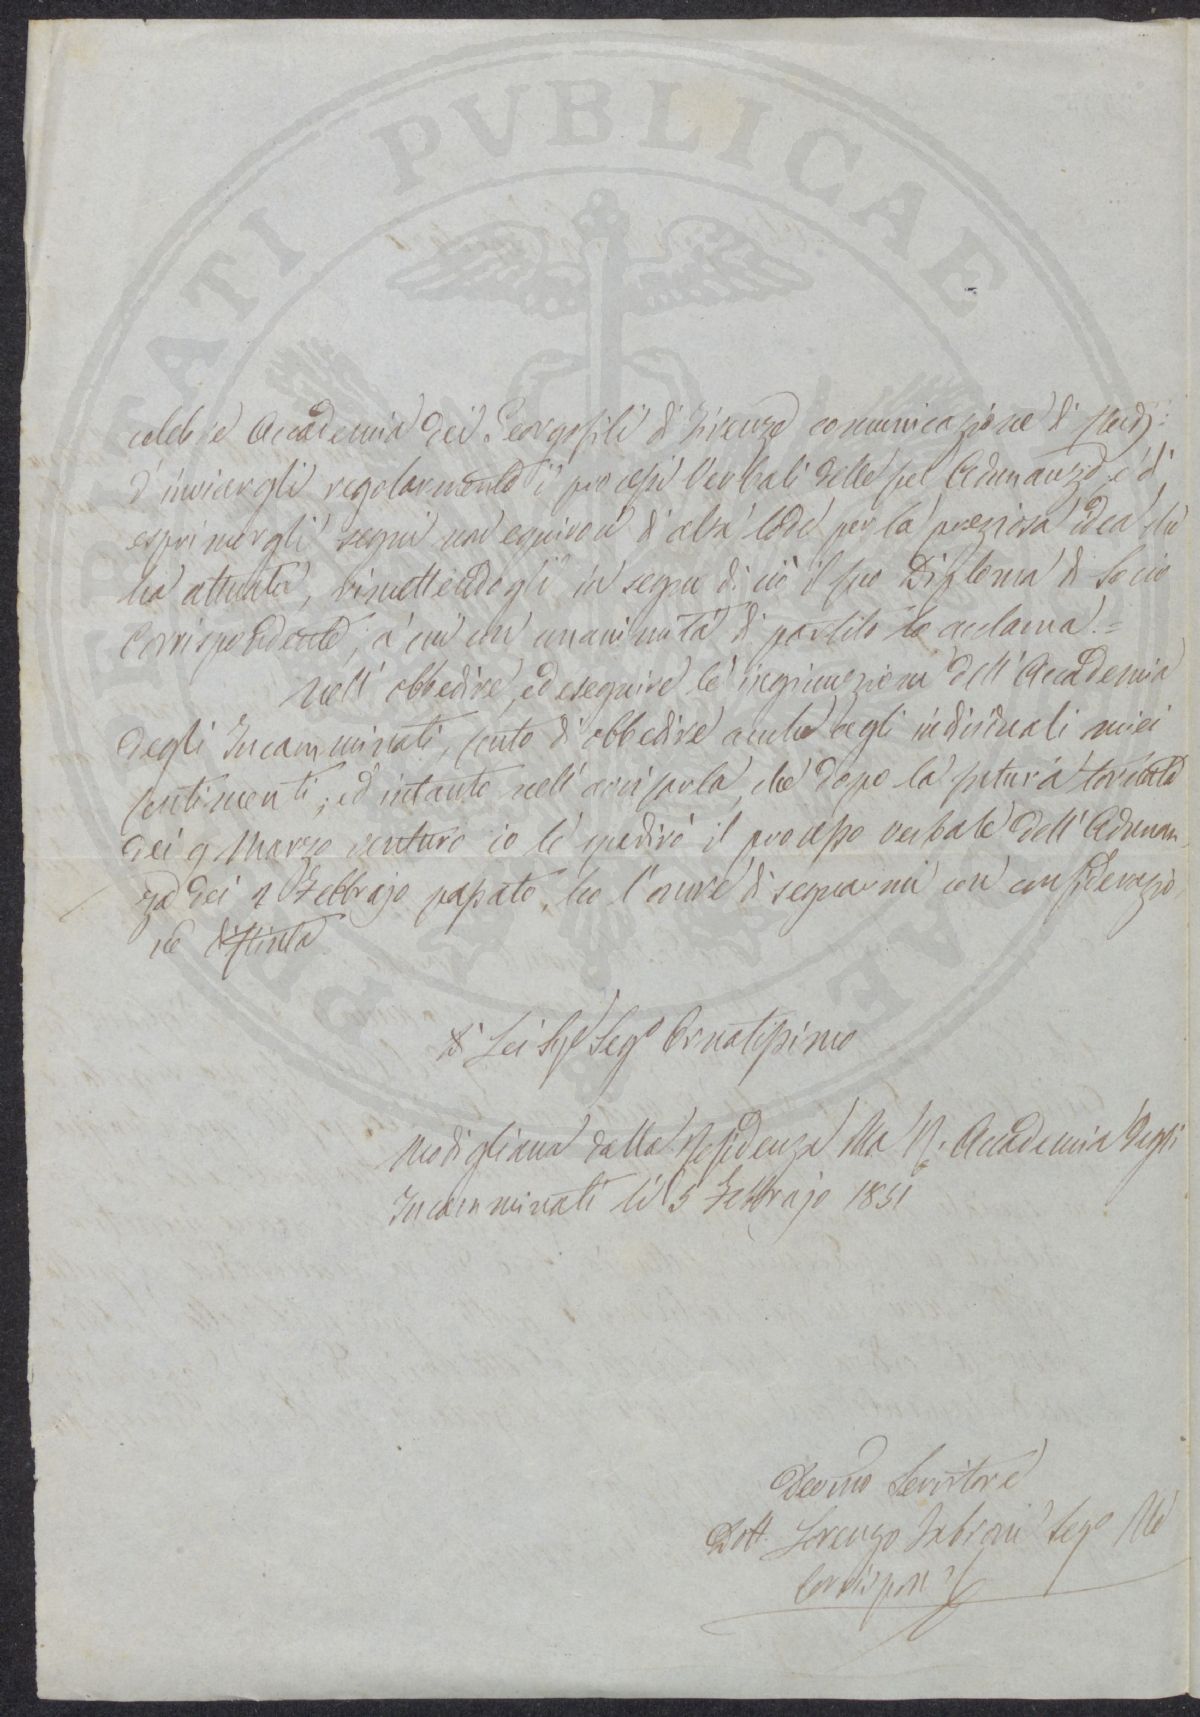 PROSPERITATI PVBLICAE AVGENDAE
celebre Accademia dei Georgofili di Firenze comunicazione di
d'inviargli regolarmente i processi Verbali delle sue Adunanze, e di
esprimergli segni non equivoci d'alta lode per la preziosa idea che
ha attuata, rimettendogli in segno di ciò il suo Diploma di Socio
Corrispondente, a cui un' unanimità di partito lo acclama. =
Nell' obbedire, ed eseguire le ingiunzioni dell' Accademia
degli Incamminati, sento di obbedire anche agli individuali miei
sentimenti; ed intanto nell' avvisarla, che dopo la futura tornata
dei 9 Marzo venturo io le spedirò il processo verbale dell' Adunan
za dei 2 Febbrajo passato, ho l'onore di segnarmi con considerazio
ne distinta
Di Lei Sig.e Seg.o Ornatissimo
Modigliana dalla Residenza della R. Accademia degli
Incamminati li 5 Febbrajo 1851
Devmo Servitore
Dott. Lorenzo Fabioni Seg.o
Corrispon.